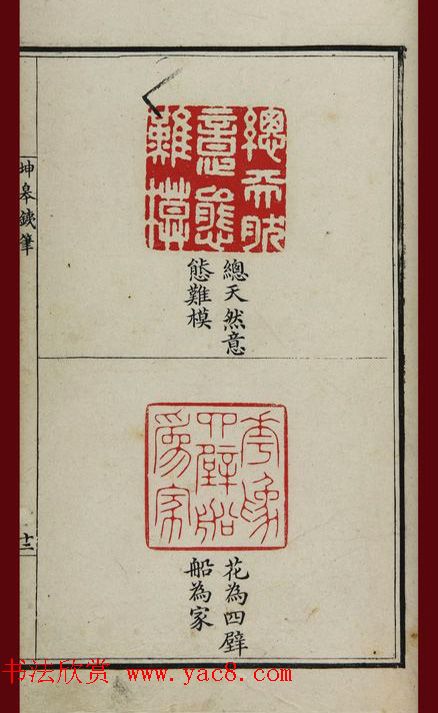 總天然
意態
難模
總天然意
態難模
花為
四壁船
為家
花為四壁
船為家
坤皋鐵筆
书法欣赏 www.yac8.com